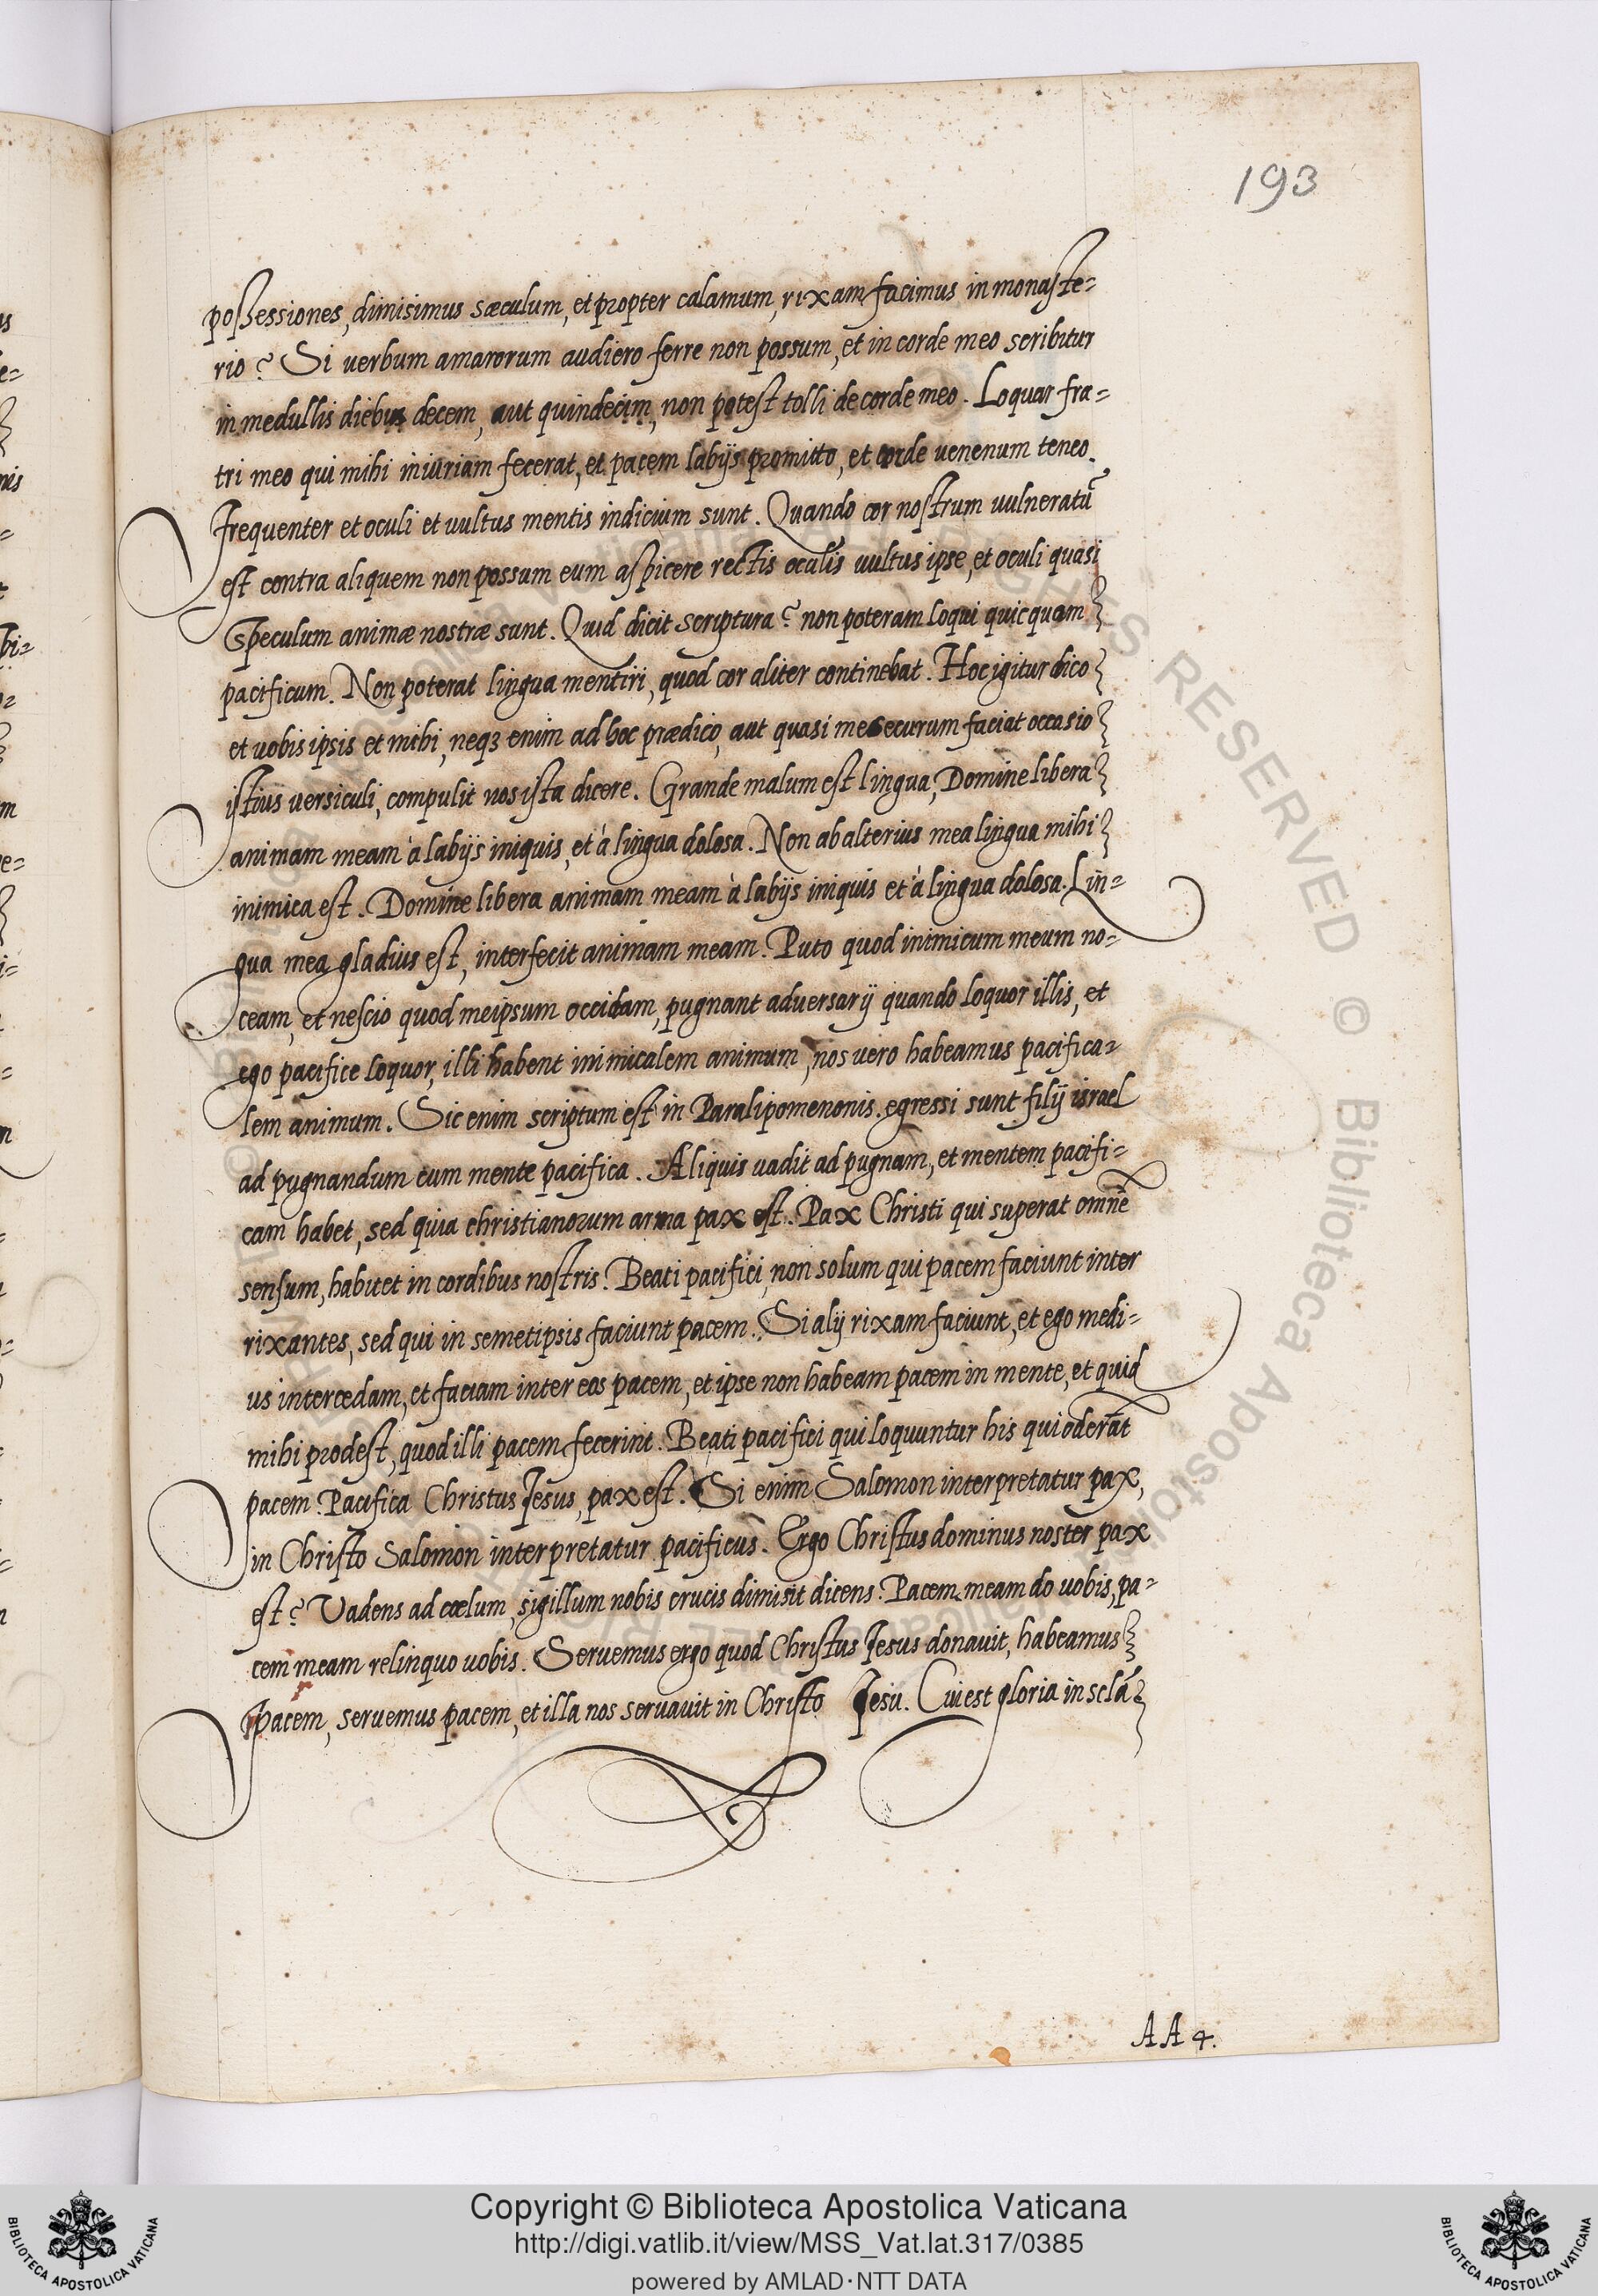 193
possessiones, dimisimus sæculum, et propter calamum, rixam facimus in monaste=
rio? Si verbum amarorum audiero ferre non possum, et in corde meo scribitur
in medullis diebus decem, aut quindecim, non potest tolli de corde meo. Loquar fra=
tri meo qui mihi iniuriam fecerat, et pacem labijs promitto, et corde uenenum teneo.
Frequenter et oculi et uultus mentis indicium sunt. Quando cor nostrum uulneratū
est contra aliquem non possum eum aspicere rectis oculis uultus ipse, et oculi quasi
speculum animæ nostræ sunt. Quid dicit scriptura? non poteram loqui quicquam
pacificum. Non poterat lingua mentiri, quod cor aliter continebat. Hoc igitur dico
et uobis ipsis et mihi, neqз enim ad hoc prædico, aut quasi me securum faciat occasio
istius uersiculi, compulit nos ista dicere. Grande malum est lingua, Domine libera
animam meam à labijs iniquis, et à lingua dolosa. Non ab alterius mea lingua mihi
inimica est. Domine libera animam meam à labijs iniquis et à lingua dolosa. Lin=
gua mea gladius est, interfecit animam meam. Puto quod inimicum meum no=
ceam, et nescio quod meipsum occidam, pugnant adversarij quando loquor illis, et
ego pacifice loquor, illi habent inimicalem animum, nos uero habeamus pacifica=
lem animum. Sic enim scriptum est in Paralipomenonis. egressi sunt filij israel
ad pugnandum cum mente pacifica. Aliquis uadit ad pugnam, et mentem pacifi=
cam habet, sed quia christianorum arma pax est. Pax Christi qui superat omnē
sensum, habitet in cordibus nostris. Beati pacifici, non solum qui pacem faciunt inter
rixantes, sed qui in semetipsis faciunt pacem. Si alij rixam faciunt, et ego medi=
us intercedam, et faciam inter eos pacem, et ipse non habeam pacem in mente, et quid
mihi prodest, quod illi pacem fecerint. Beati pacifici qui loquuntur his qui oderāt
pacem. Pacifica Christus Jesus, pax est. Si enim Salomon interpretatur pax,
in Christo Salomon interpretatur pacificus. Ergo Christus dominus noster pax
est? Vadens ad cœlum, sigillum nobis crucis dimisit dicens. Pacem meam do uobis, pa=
cem meam relinquo uobis. Seruemus ergo quod Christus Jesus donauit, habeamus
Pacem, seruemus pacem, et illa nos seruauit in Christo Jesu. Cui est gloria in sclā
AA 4.
Copyright © Biblioteca Apostolica Vaticana
http://digi.vatlib.it/view/MSS_Vat.lat.317/0385
powered by AMLAD·NTT DATA
BIBLIOTECA APOSTOLICA VATICANA
BIBLIOTECA APOSTOLICA VATICANA